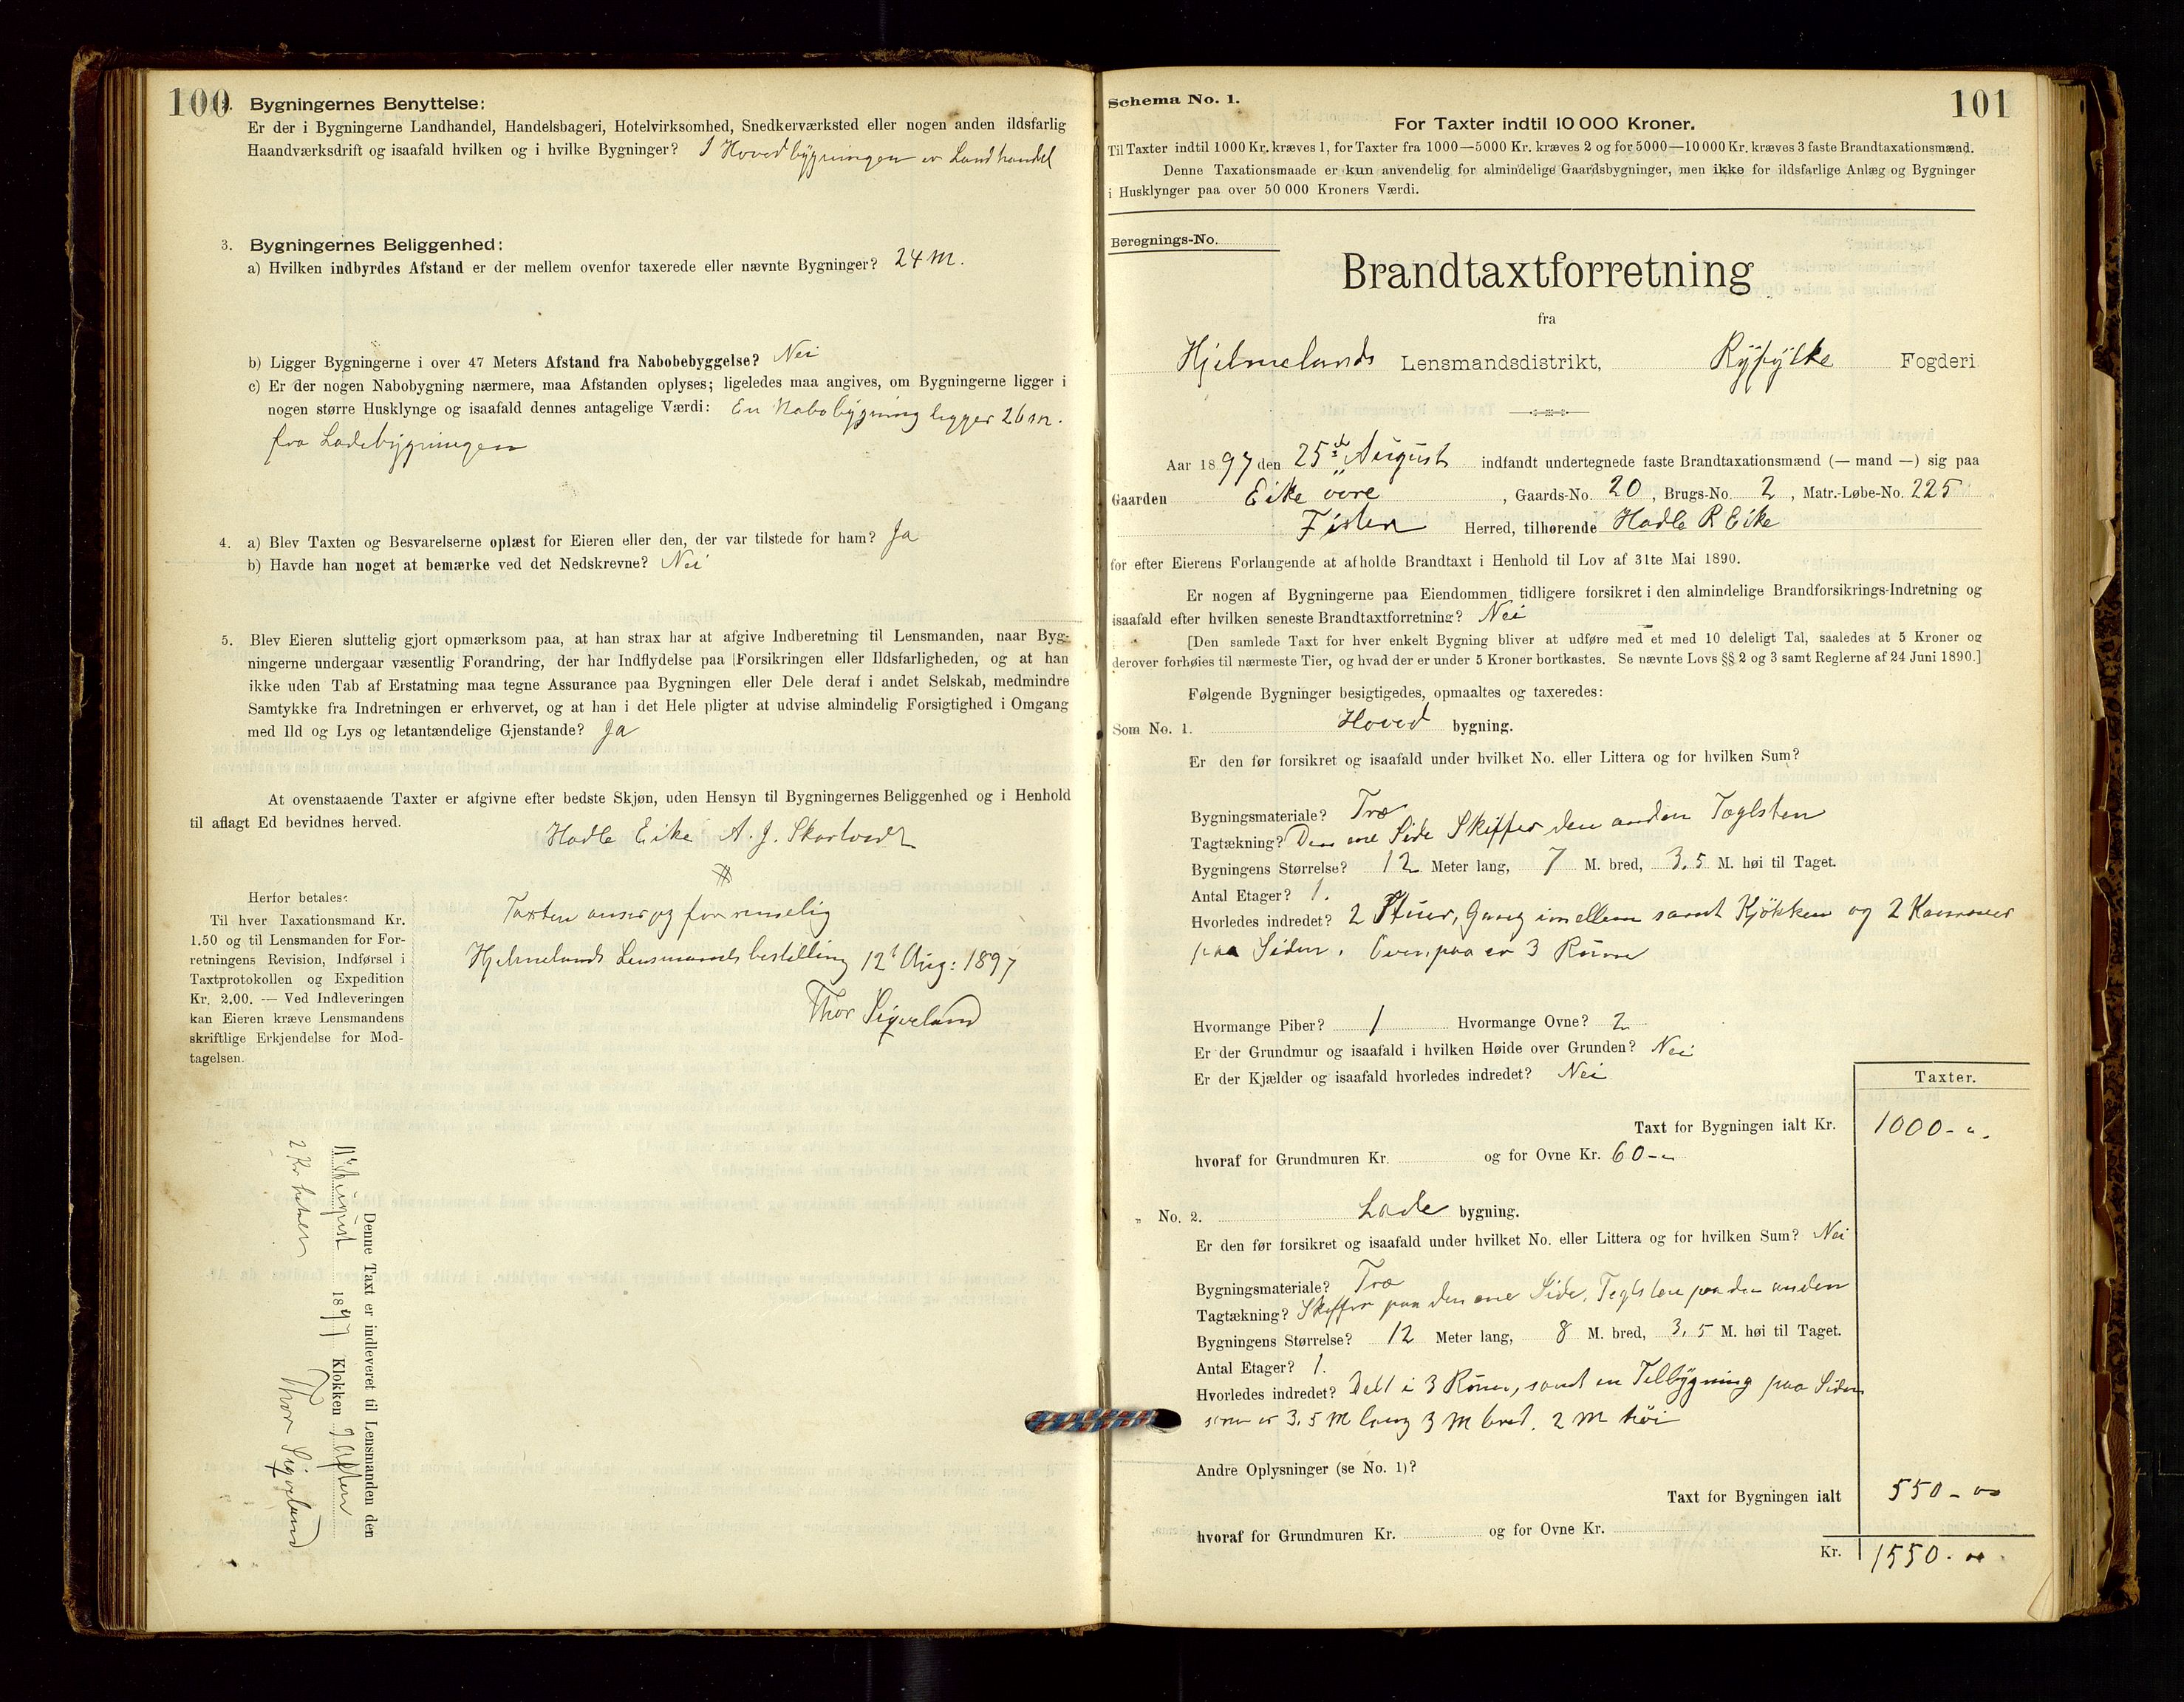 100
2. Bygningernes Benyttelse:
Er der i Bygningerne Landhandel, Handelsbageri, Hotelvirksomhed, Snedkerværksted eller nogen anden ildsfarlig
Haandværksdrift og isaafald hvilken og i hvilke Bygninger? I Hovedbygningen er Landhandel
3. Bygningernes Beliggenhed:
a) Hvilken indbyrdes Afstand er der mellem ovenfor taxerede eller nævnte Bygninger? 24 M.
b) Ligger Bygningerne i over 47 Meters Afstand fra Nabobebyggelse? Nei
c) Er der nogen Nabobygning nærmere, maa Afstanden oplyses; ligeledes maa angives, om Bygningerne ligger i
nogen større Husklynge og isaafald dennes antagelige Værdi: En Nabobygning ligger 26 m.
fra Ladebygningen
4. a) Blev Taxten og Besvarelserne oplæst for Eieren eller den, der var tilstede for ham? Ja
b) Havde han noget at bemærke ved det Nedskrevne? Nei
5. Blev Eieren sluttelig gjort opmærksom paa, at han strax har at afgive Indberetning til Lensmanden, naar Byg-
ningerne undergaar væsentlig Forandring, der har Indflydelse paa Forsikringen eller Ildsfarligheden, og at han
ikke uden Tab af Erstatning maa tegne Assurance paa Bygningen eller Dele deraf i andet Selskab, medmindre
Samtykke fra Indretningen er erhvervet, og at han i det Hele pligter at udvise almindelig Forsigtighed i Omgang
med Ild og Lys og letantændelige Gjenstande? Ja
At ovenstaaende Taxter er afgivne efter bedste Skjøn, uden Hensyn til Bygningernes Beliggenhed og i Henhold
til aflagt Ed bevidnes herved.
Hadle Eike A. J. Skartvedt
Herfor betales:
Til hver Taxationsmand Kr.
1.50 og til Lensmanden for For-
retningens Revision, Indførsel i
Taxtprotokollen og Expedition
Kr. 2.00. — Ved Indleveringen
kan Eieren kræve Lensmandens
skriftlige Erkjendelse for Mod-
tagelsen.
Taxten anser jeg for rimelig
Hjelmelands Lensmandsbestilling 12t Aug: 1897
Thor Sigveland
Denne Taxt er indleveret til Lensmanden den
August 1897 Klokken Aften
2 Kr betalt
Thor Sigveland
Schema No. 1.
101
For Taxter indtil 10 000 Kroner.
Til Taxter indtil 1000 Kr. kræves 1, for Taxter fra 1000—5000 Kr. kræves 2 og for 5000—10 000 Kr. kræves 3 faste Brandtaxationsmænd.
Denne Taxationsmaade er kun anvendelig for almindelige Gaardsbygninger, men ikke for ildsfarlige Anlæg og Bygninger
i Husklynger paa over 50 000 Kroners Værdi.
Beregnings-No.
Brandtaxtforretning
fra
Hjelmelands Lensmandsdistrikt, Ryfylke Fogderi
Aar 1897 den 25de August indfandt undertegnede faste Brandtaxationsmænd (— mand —) sig paa
Gaarden Eike övre, Gaards-No. 20, Brugs-No. 2, Matr.-Løbe-No. 225
Fister Herred, tilhørende Hadle R Eike
for efter Eierens Forlangende at afholde Brandtaxt i Henhold til Lov af 31te Mai 1890.
Er nogen af Bygningerne paa Eiendommen tidligere forsikret i den almindelige Brandforsikrings-Indretning og
isaafald efter hvilken seneste Brandtaxtforretning? Nei
[Den samlede Taxt for hver enkelt Bygning bliver at udføre med et med 10 deleligt Tal, saaledes at 5 Kroner og
derover forhøies til nærmeste Tier, og hvad der er under 5 Kroner bortkastes. Se nævnte Lovs §§ 2 og 3 samt Reglerne af 24 Juni 1890.]
Følgende Bygninger besigtigedes, opmaaltes og taxeredes:
Som No. 1. Hoved bygning.
Er den før forsikret og isaafald under hvilket No. eller Littera og for hvilken Sum?
Bygningsmateriale? Træ
Tagtækning? Den ene Side Skiffer den anden Taglsten
Bygningens Størrelse? 12 Meter lang, 7 M. bred, 3,5 M. høi til Taget.
Antal Etager? 1.
Hvorledes indredet? 2 Stuer, Gang imellem samt Kjökken og 2 Kammer
paa Siden. Ovenpaa er 3 Rum
Hvormange Piber? 1 Hvormange Ovne? 2
Er der Grundmur og isaafald i hvilken Høide over Grunden? Nei
Er der Kjælder og isaafald hvorledes indredet? Nei
Taxter.
Taxt for Bygningen ialt Kr. 1000 - "
hvoraf for Grundmuren Kr. og for Ovne Kr. 60 - "
" No. 2. Lade bygning.
Er den før forsikret og isaafald under hvilket No. eller Littera og for hvilken Sum? Nei
Bygningsmateriale? Træ
Tagtækning? Skiffer paa den ene Side, Teglsten paa den anden
Bygningens Størrelse? 12 Meter lang, 8 M. bred, 3,5 M. høi til Taget.
Antal Etager? 1.
Hvorledes indredet? Delt i 3 Rum, samt en Tilbygning paa Siden
som er 3,5 M lang 3 M bred. 2 M höi
Andre Oplysninger (se No. 1)?
Taxt for Bygningen ialt 550 - 00
hvoraf for Grundmuren Kr. og for Ovne Kr.
Kr. 1550 - 00